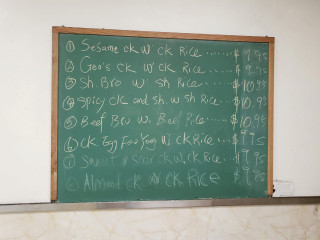 ① Sesame ck w ck Rice ...... $ 9.95
② Gen's ck w ck Rice .... $ 9.95
③ Sh. Bro w sh Rice ..... $ 10.95
④ Spicy ck and sh. w sh Rice ... $ 10.95
⑤ Beef Bro w. Beef Rice .... $ 10.95
⑥ ck Egg Foo Yong w ck Rice ... $ 9.95
⑦ Sweet & Sour ck w. ck Rice ... $ 9.95
⑧ Almond ck w ck Rice $ 9.95